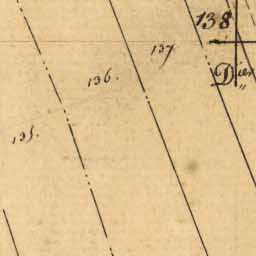 138
137
136.
135.